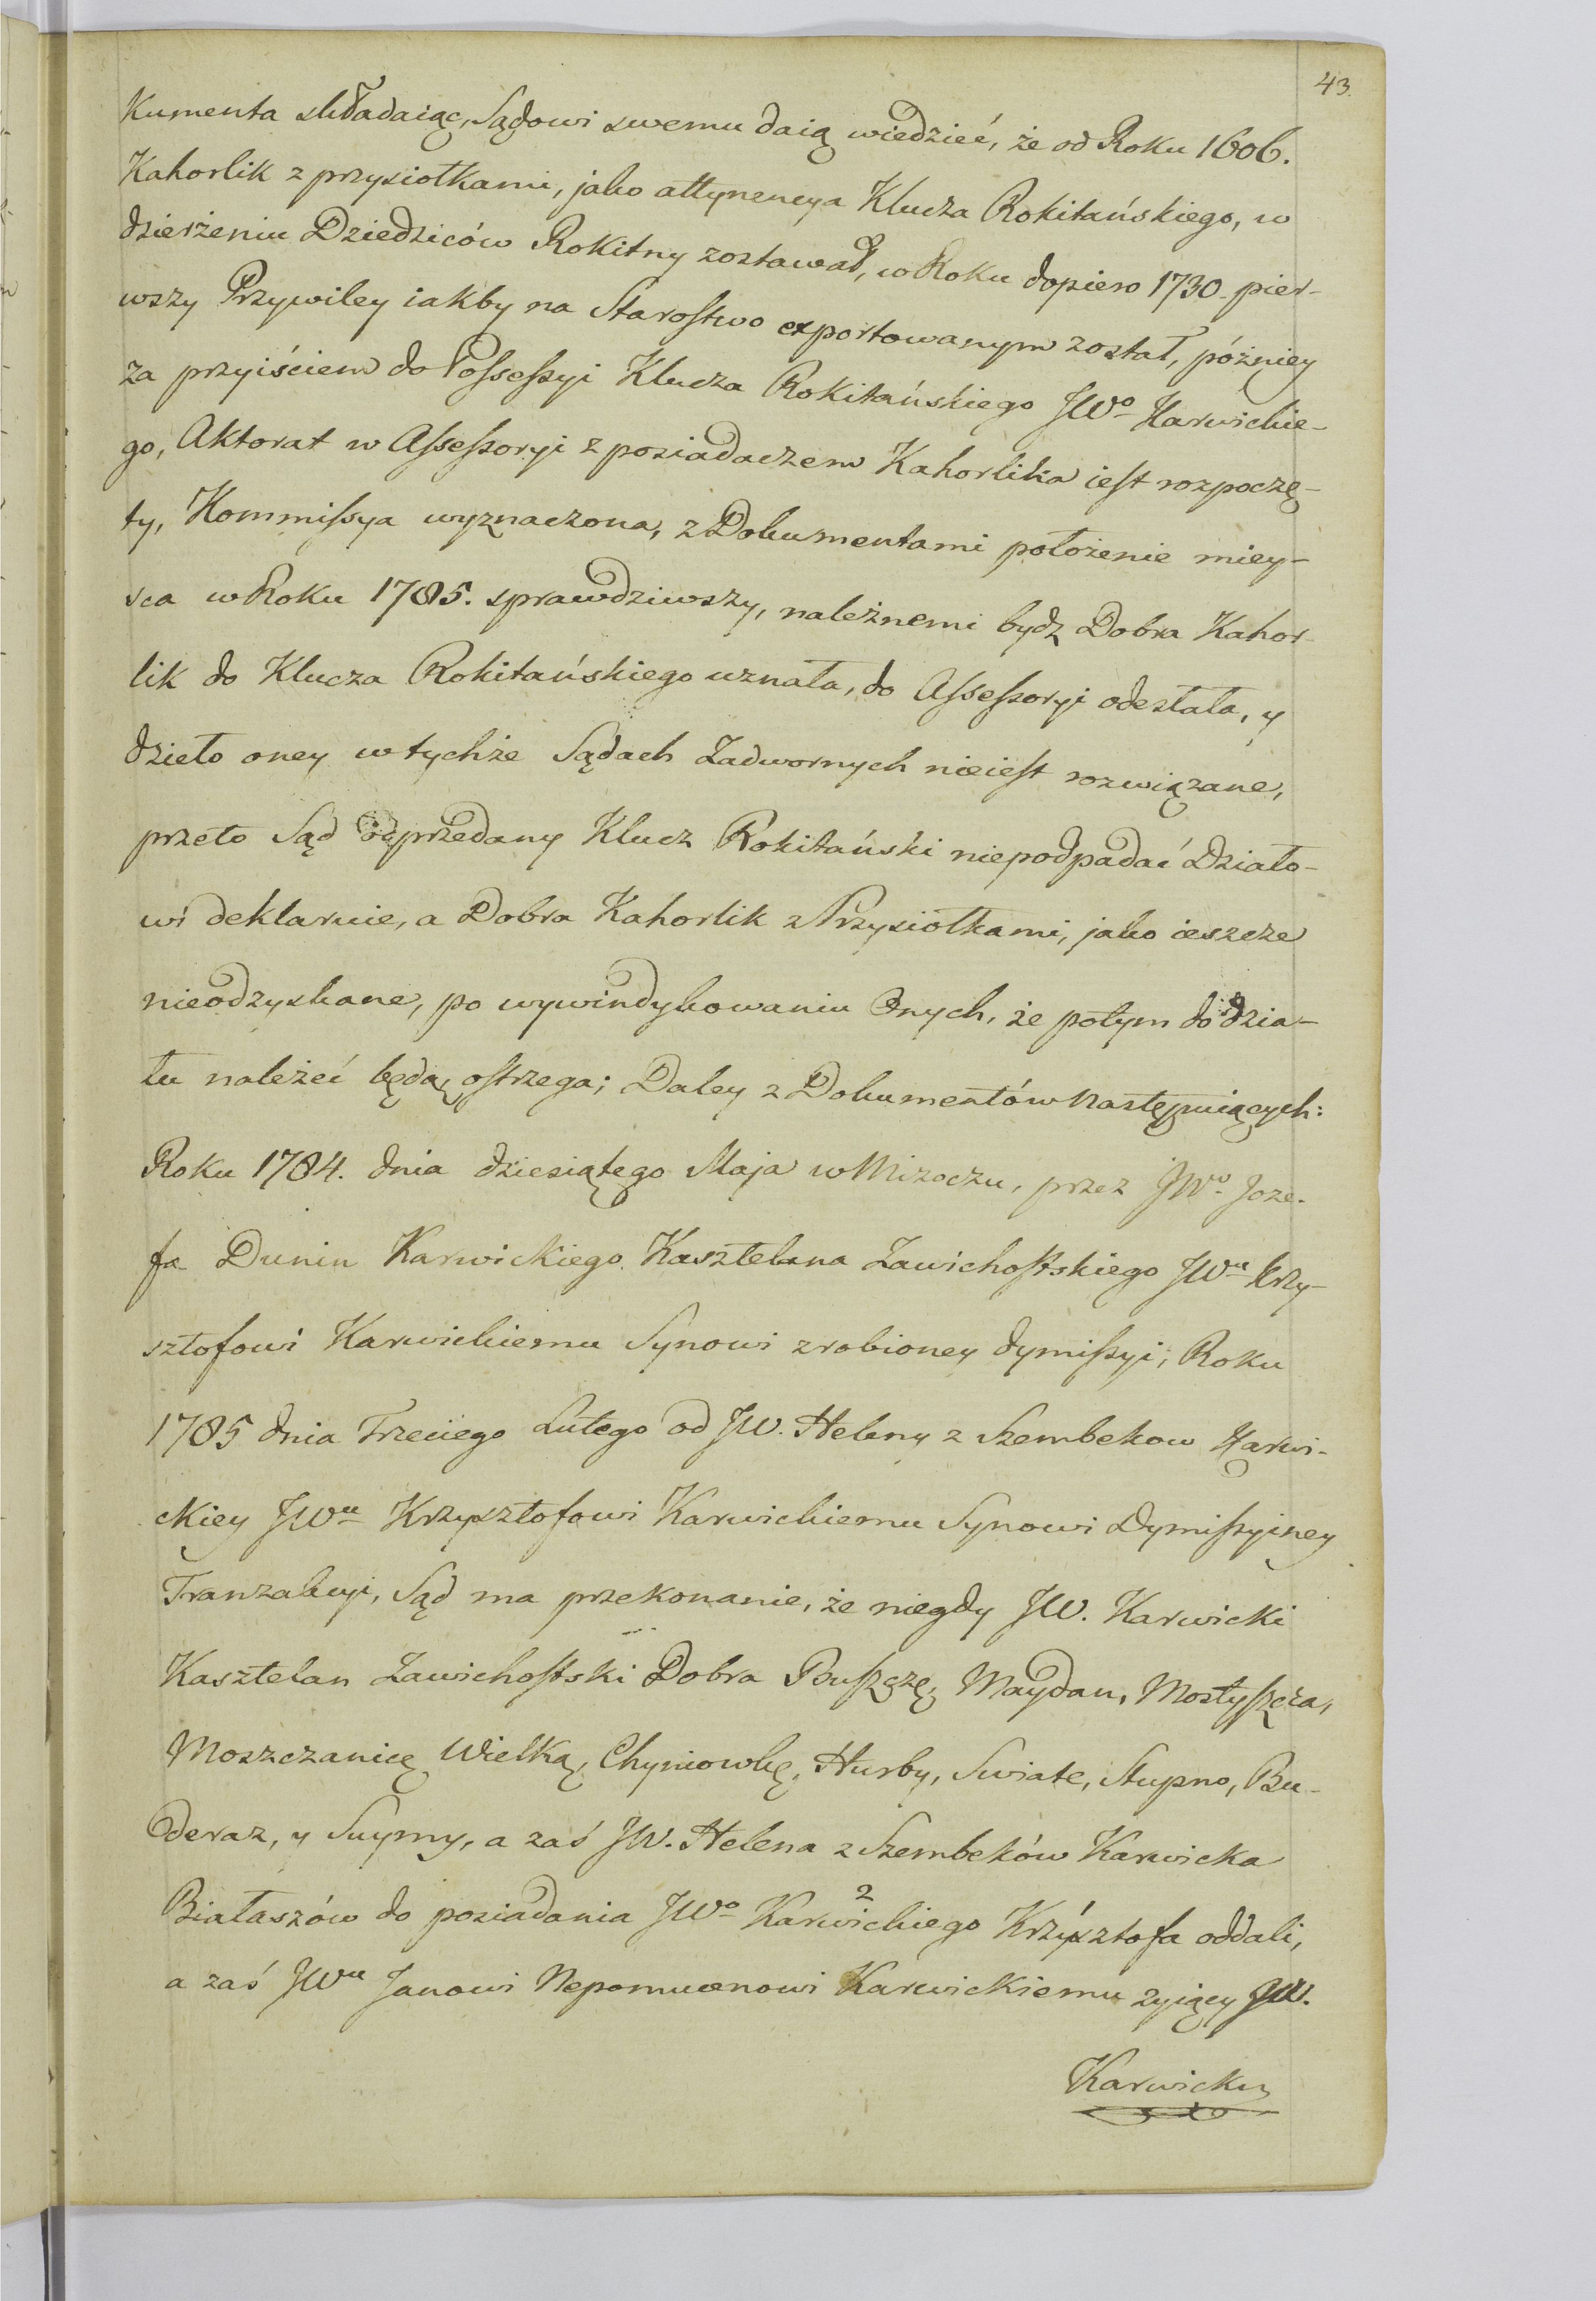 43.
kumenta składaiąc, Sądowi swemu daią wiedzieć, że od Roku 1606.
Kahorlik z przysiołkami, jako attynencya Klucza Rokitańskiego, w
dzierżeniu Dziedziców Rokitny zostawał, w Roku dopiero 1730. pier-
wszy Przywiley iakby na Starostwo exportowanym został, późniey
za przyiściem do Possessyi Klucza Rokitańskiego JWo Karwickie-
go, Aktorat w Assessoryi z posiadaczem Kahorlika iest rozpoczę-
ty, Kommissya wyznaczona, z Dokumentami położenie miey-
sca w Roku 1785. sprawdziwszy, należnemi bydz Dobra Kahor-
lik do Klucza Rokitańskiego uznała, do Assessoryi odesłała, y
dzieło oney w tychże Sądach Zadwornych nieiest rozwiązane,
przeto Sąd odprzedany Klucz Rokitański niepodpadać Działo-
wi deklaruie, a Dobra Kahorlik z Przysiołkami, jako ieszcze
nieodzyskane, po wywindykowaniu Onych, że potym do dzia-
łu należeć będą, ostrzega; Daley z Dokumentów następuiących:
Roku 1784. dnia dziesiątego Maja w Mizoczu, przez JWo Joze-
fa Dunin Karwickiego Kasztelana Zawichostskiego JWu Krzy-
sztofowi Karwickiemu Synowi zrobioney dymissyi, Roku
1785 dnia Trzeciego Lutego od JW. Heleny z Szembekow Karwi-
ckiey JWu Krzysztofowi Karwickiemu Synowi Dymissyiney
Tranzakcyi, Sąd ma przekonanie, że niegdy JW. Karwicki
Kasztelan Zawichostski Dobra Buszczę, Maydan, Mostyszcza,
Moszczanicę Wielką, Chyniowkę, Hurby, Swiate, Stupno, Bu-
deraz, y Suymy, a zaś JW. Helena z Szembeków Karwicka
Białaszów do posiadania JWo Karwickiego 2 Krzysztofa oddali,
a zaś JWu Janowi Nepomucenowi Karwickiemu żyiący JW.
Karwicky